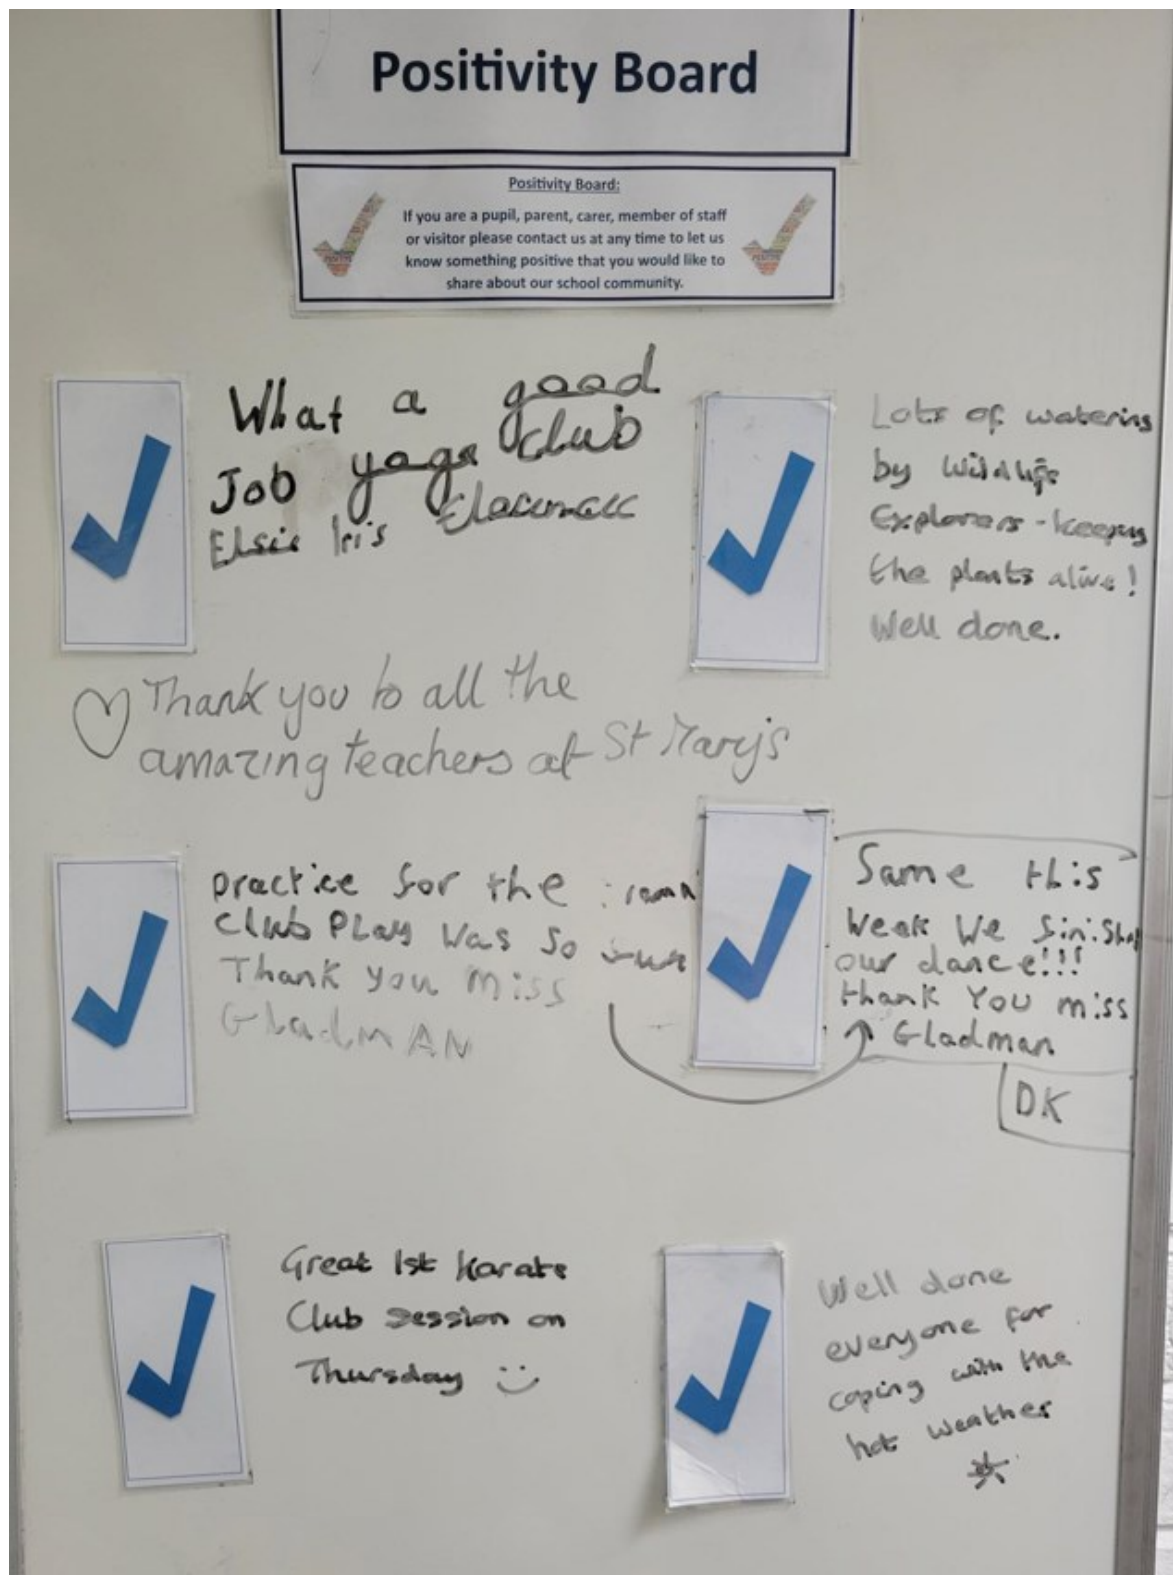 Positivity Board
Positivity Board:
If you are a pupil, parent, carer, member of staff
or visitor please contact us at any time to let us
know something positive that you would like to
share about our school community.
What a good
Job yoga club
Elsie Iris
Lots of watering
by Wildlife
Explorers - keeping
the plants alive!
Well done.
Thank you to all the
amazing teachers at St Mary's
practice for the
Club PLay Was So
Thank you miss
GLadmAN
Same this
Weak We finish
our dance!!!
thank You miss
Gladman
DK
Great 1st Karate
Club session on
Thursday
Well done
everyone for
coping with the
hot weather